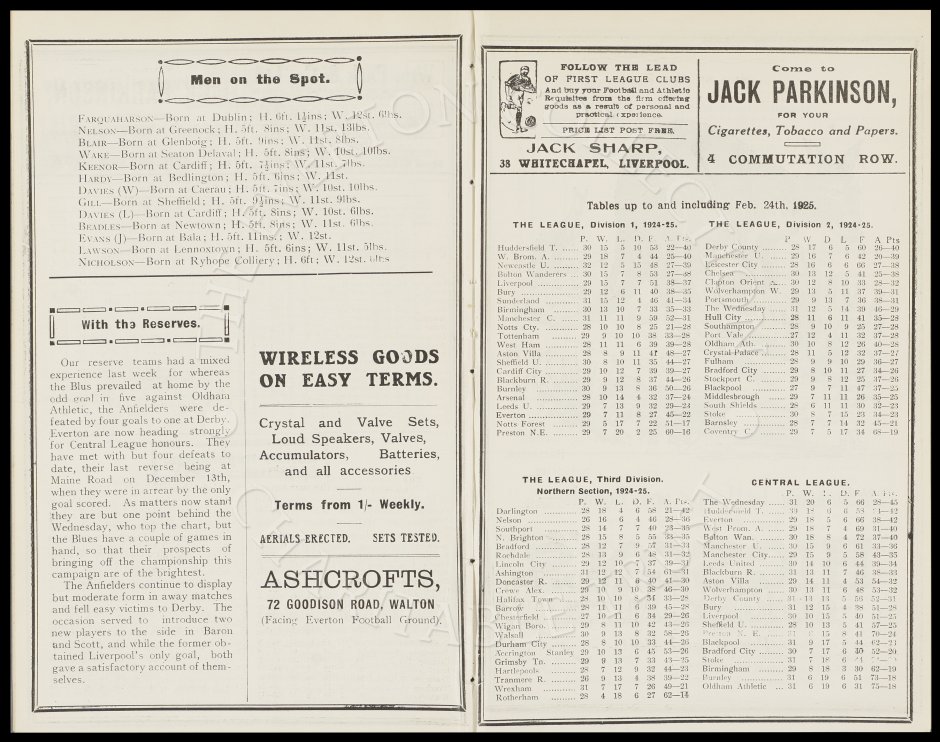 Men on the Spot.
FARQUAHARSON—Born at Dublin; H. 6ft. 1½ins; W. 12st. 6lbs.
NELSON—Born at Greenock; H. 5ft. 8ins; W. 11st. 13lbs.
BLAIR—Born at Glenboig; H. 5ft. 9ins; W. 11st. 8lbs.
WAKE—Born at Seaton Delaval; H. 5ft. 8ins; W. 10st. 10lbs.
KEENOR—Born at Cardiff; H. 5ft. 7½ins; W. 11st. 7lbs.
HARDY—Born at Bedlington; H. 5ft. 6ins; W. 11st.
DAVIES (W)—Born at Caerau; H. 5ft. 7ins; W. 10st. 10lbs.
GILL—Born at Sheffield; H. 5ft. 9½ins; W. 11st. 9lbs.
DAVIES (L)—Born at Cardiff; H. 5ft. 8ins; W. 10st. 6lbs.
BEADLES—Born at Newtown; H. 5ft. 8ins; W. 11st. 6lbs.
EVANS (J)—Born at Bala; H. 5ft. 11ins.; W. 12st.
LAWSON—Born at Lennoxtown; H. 5ft. 6ins; W. 11st. 5lbs.
NICHOLSON—Born at Ryhope Colliery; H. 6ft; W. 12st. 6lbs
With the Reserves.
Our reserve teams had a mixed
experience last week for whereas
the Blus prevailed at home by the
odd goal in five against Oldham
Athletic, the Anfielders were de-
feated by four goals to one at Derby.
Everton are now heading strongly
for Central League honours. They
have met with but four defeats to
date, their last reverse being at
Maine Road on December 13th,
when they were in arrear by the only
goal scored. As matters now stand
they are but one point behind the
Wednesday, who top the chart, but
the Blues have a couple of games in
hand, so that their prospects of
bringing off the championship this
campaign are of the brightest.
The Anfielders continue to display
but moderate form in away matches
and fell easy victims to Derby. The
occasion served to introduce two
new players to the side in Baron
and Scott, and while the former ob-
tained Liverpool's only goal, both
gave a satisfactory account of them-
selves.
WIRELESS GOODS
ON EASY TERMS.
Crystal and Valve Sets,
Loud Speakers, Valves,
Accumulators, Batteries,
and all accessories
Terms from 1/- Weekly.
AERIALS ERECTED. SETS TESTED.
ASHCROFTS,
72 GOODISON ROAD, WALTON
(Facing Everton Football Ground).
FOLLOW THE LEAD
OF FIRST LEAGUE CLUBS
And buy your Football and Athletic
Requisites from the firm offering
goods as a result of personal and
practical experience.
PRICE LIST POST FREE.
JACK SHARP,
38 WHITECHAPEL, LIVERPOOL.
Come to
JACK PARKINSON,
FOR YOUR
Cigarettes, Tobacco and Papers.
4 COMMUTATION ROW.
Tables up to and including Feb. 24th, 1925.
THE LEAGUE, Division 1, 1924-25.
P. W. L. D. F. A. Pts.
Huddersfield T. ...... 30 15 5 10 53 22—40
W. Brom. A. ...... 29 18 7 4 44 25—40
Newcastle U. ...... 32 12 5 15 48 27—39
Bolton Wanderers ... 30 15 7 8 53 27—38
Liverpool ...... 29 15 7 7 51 38—37
Bury ...... 29 12 6 11 40 38—35
Sunderland ...... 31 15 12 4 46 41—34
Birmingham ...... 30 13 10 7 33 35—33
Manchester C. ...... 31 11 11 9 59 52—31
Notts Cty. ...... 28 10 10 8 25 21—28
Tottenham ...... 29 9 10 10 38 33—28
West Ham ...... 28 11 11 6 39 39—28
Aston Villa ...... 28 8 9 11 41 48—27
Sheffield U. ...... 30 8 10 11 35 44—27
Cardiff City ...... 29 10 12 7 39 39—27
Blackburn R. ...... 29 9 12 8 37 44—26
Burnley ...... 30 9 13 8 36 50—26
Arsenal ...... 28 10 14 4 32 37—24
Leeds U. ...... 29 7 13 9 32 29—23
Everton ...... 29 7 11 8 27 45—22
Notts Forest ...... 29 5 17 7 22 51—17
Preston N.E. ...... 29 7 20 2 25 60—16
THE LEAGUE, Division 2, 1924-25.
P. W D L F A Pts
Derby County ...... 28 17 6 5 60 26—40
Manchester U. ...... 29 16 7 6 42 20—39
Leicester City ...... 28 16 6 6 66 27—38
Chelsea ...... 30 13 12 5 41 25—38
Clapton Orient ...... 30 12 8 10 33 28—32
Wolverhampton W. 29 13 5 11 37 39—31
Portsmouth ...... 29 9 13 7 36 38—31
The Wednesday ...... 31 12 5 14 39 46—29
Hull City ...... 28 11 6 11 41 35—28
Southampton ...... 28 9 10 9 25 27—28
Port Vale ...... 27 12 4 11 32 37—28
Oldham Ath. ...... 30 10 8 12 26 40—28
Crystal Palace ...... 28 11 5 12 32 37—27
Fulham ...... 28 9 9 10 29 36—27
Bradford City ...... 29 8 10 11 27 34—26
Stockport C. ...... 29 9 8 12 25 37—26
Blackpool ...... 27 9 7 11 47 37—25
Middlesbrough ...... 29 7 11 11 26 35—25
South Shields ...... 28 6 11 11 30 32—23
Stoke ...... 30 8 7 15 23 34—23
Barnsley ...... 28 7 7 14 32 45—21
Coventry C. ...... 29 7 5 17 34 68—19
THE LEAGUE, Third Division.
Northern Section, 1924-25.
P. W. L. D. F. A. Pts.
Darlington ...... 28 18 4 6 58 21—42
Nelson ...... 26 16 6 4 46 28—36
Southport ...... 28 14 7 7 40 23—35
N. Brighton ...... 28 15 8 5 55 33—35
Bradford ...... 28 12 7 9 57 31—33
Rochdale ...... 28 13 9 6 48 31—32
Lincoln City ...... 29 12 10 7 37 39—31
Ashington ...... 31 12 12 7 54 61—31
Doncaster R. ...... 29 12 11 6 40 41—30
Crewe Alex. ...... 29 10 9 10 38 46—30
Halifax Town ...... 28 10 10 8 31 33—28
Barrow ...... 28 11 11 6 39 45—28
Chesterfield ...... 27 10 11 6 34 29—26
Wigan Boro. ...... 29 8 11 10 42 43—26
Walsall ...... 30 9 13 8 32 58—26
Durham City ...... 28 8 10 10 33 44—26
Accrington Stanley 29 10 13 6 45 53—26
Grimsby Tn. ...... 29 9 13 7 33 43—25
Hartlepools ...... 28 7 12 9 32 44—23
Tranmere R. ...... 26 9 13 4 38 39—22
Wrexham ...... 31 7 17 7 26 49—21
Rotherham ...... 28 4 18 6 27 62—14
CENTRAL LEAGUE.
P. W. D F
The Wednesday ... 31 20 6 5 66 28—45
Huddersfield T. ... 31
Everton ...... 29 18 5 6 66 38—42
West Prom. A. ... 29 18 7 4 69 31—40
Bolton Wan. ...... 30 18 8 4 72 37—40
Manchester U. ...... 30 15 9 6 61 33—36
Manchester City ... 29 15 9 5 58 43—35
Leeds United ...... 30 14 10 6 44 39—34
Blackburn R. ...... 31 13 11 7 46 38—33
Aston Villa ...... 29 14 11 4 53 54—32
Wolverhampton ... 30 13 11 6 48 53—32
Derby County ...... 31 13 13 5 56 52—31
Bury ...... 31 12 15 4 38 51—28
Liverpool ...... 30 10 15 5 40 51—25
Sheffield U. ...... 28 10 13 5 41 57—25
Preston N. E. ...... 31 8 15 8 41 70—24
Blackpool ...... 31 9 17 5 44 62—23
Bradford City ...... 30 7 17 6 30 52—20
Stoke ...... 31 7 18 6
Birmingham ...... 29 8 18 3 30 62—19
Burnley ...... 31 6 19 6 51 73—18
Oldham Athletic ... 31 6 19 6 31 75—18